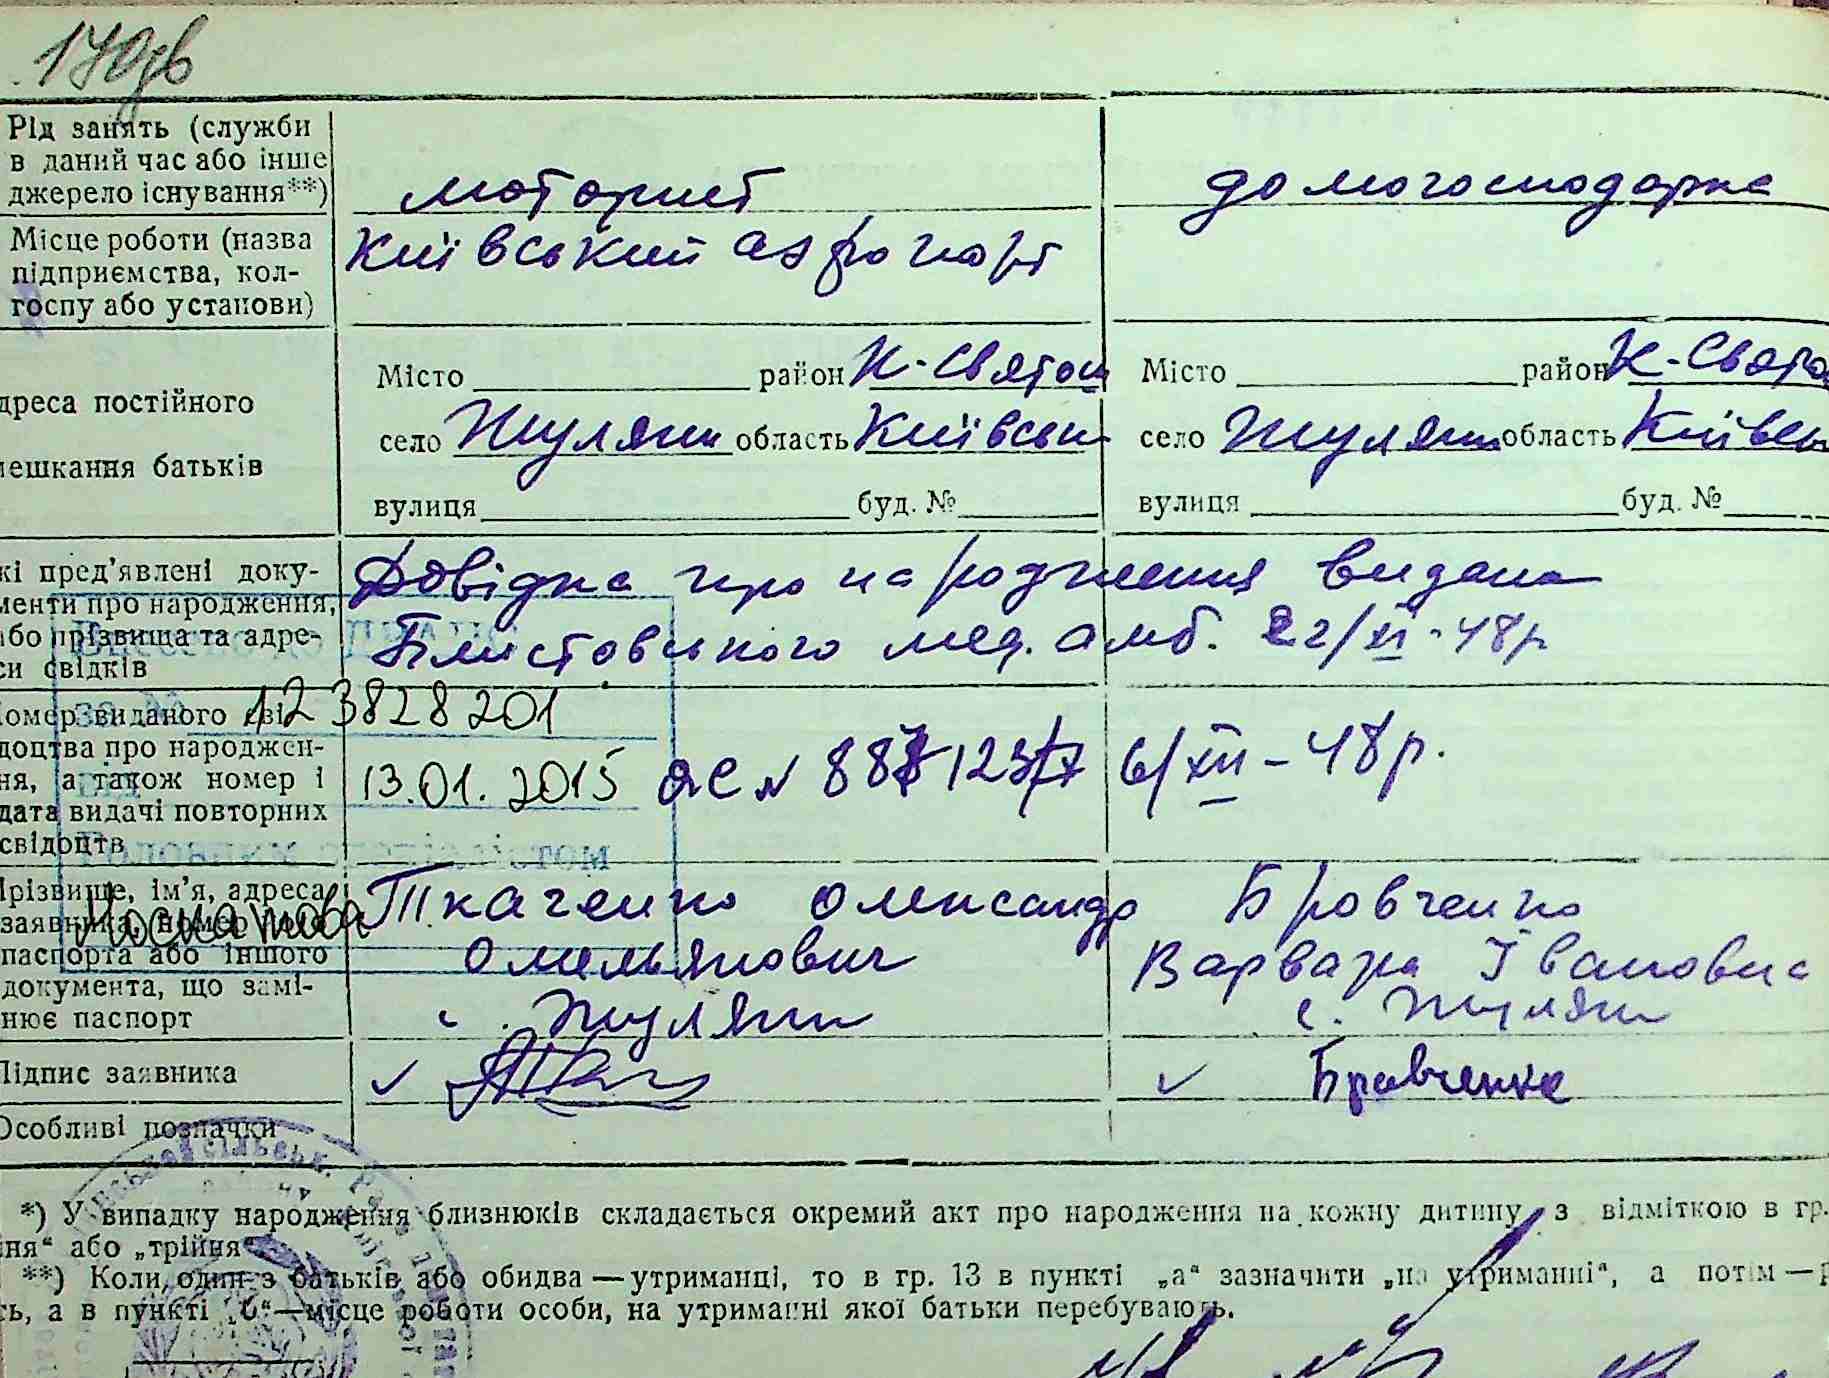 170зв
Рід занять (служби
в даний час або інше
джерело існування**)
моторист
домогосподарка
Місце роботи (назва
підприємства, кол-
госпу або установи)
Київський аэропорт
дреса постійного
мешкання батьків
Місто район К-Святош
село Жуляни область Київськ
вулиця буд. №
Місто район К-Свято
село Жуляни область Київсь
вулиця буд. №
кі пред'явлені доку-
менти про народження,
або прізвища та адре-
си свідків
Довідка про народження видана
мед. амб. 22/XI-48р
Номер виданого сві-
доцтва про народжен-
ня, а також номер і
дата видачі повторних
свідоцтв
123828201
13.01.2015
ЯС № 6/XII-48р.
Прізвище, ім'я, адреса
заявника, номер
паспорта або іншого
документа, що замі-
нює паспорт
Ткаченко Олександр
Омельянович
с. Жуляни
Бровченко
Варвара Івановна
с. Жуляни
Підпис заявника
Бровченко
Особливі позначки
*) У випадку народження близнюків складається окремий акт про народження на кожну дитину з відміткою в гр.
ня" або „трійня".
**) Коли один з батьків або обидва — утриманці, то в гр. 13 в пункті „а" зазначити „на утриманні", а потім —
ть, а в пункті „б"—місце роботи особи, на утриманні якої батьки перебувають.